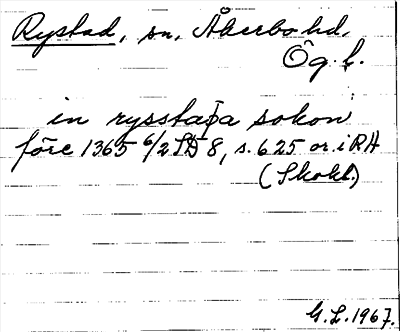 Rystad, sn, Åkerbo hd,
Ög. l.
in rysstaþa sokon
före 1365 6/2 SD 8, s. 625 or. i RH
(Skokl.)
G. L. 1967.